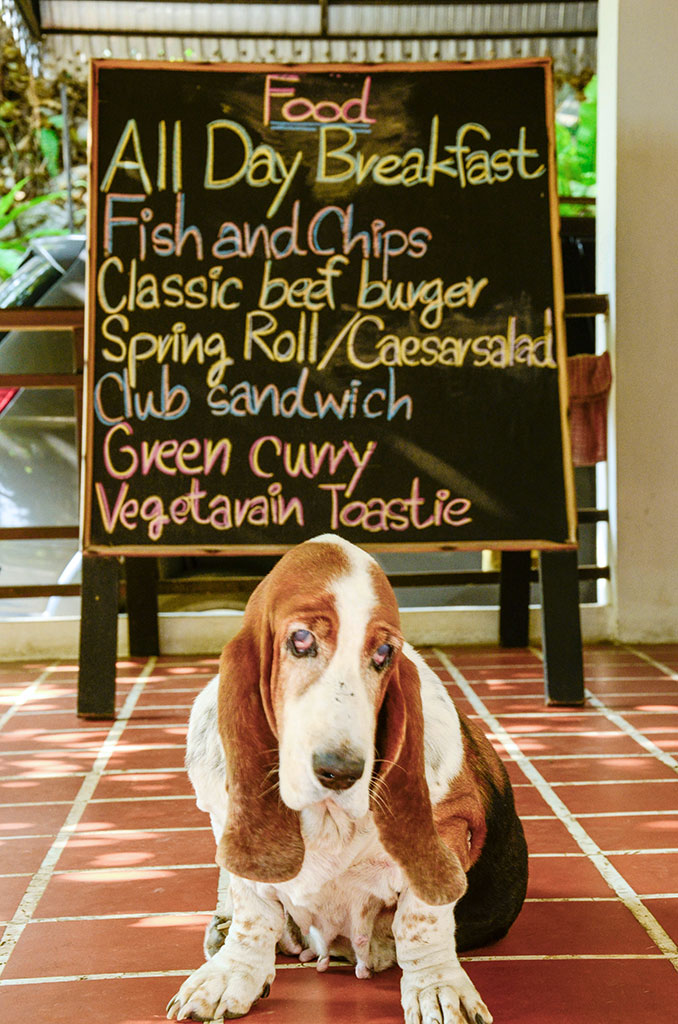 Food
All Day Breakfast
Fish and Chips
Classic beef burger
Spring Roll/Caesarsalad
Club sandwich
Green curry
Vegetarain Toastie